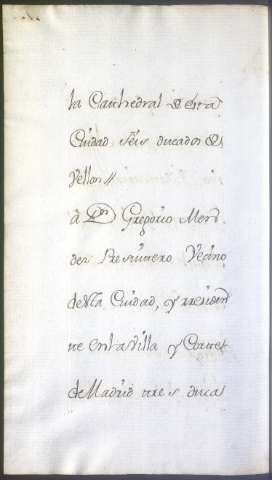 la Cathedral de esta
Ciudad seis ducados de
Vellon//
à Dn Gregorio Men
dez Presvitero Vecino
de esta Ciudad, y residen
te en la Villa y Corte
de Madrid tres duca